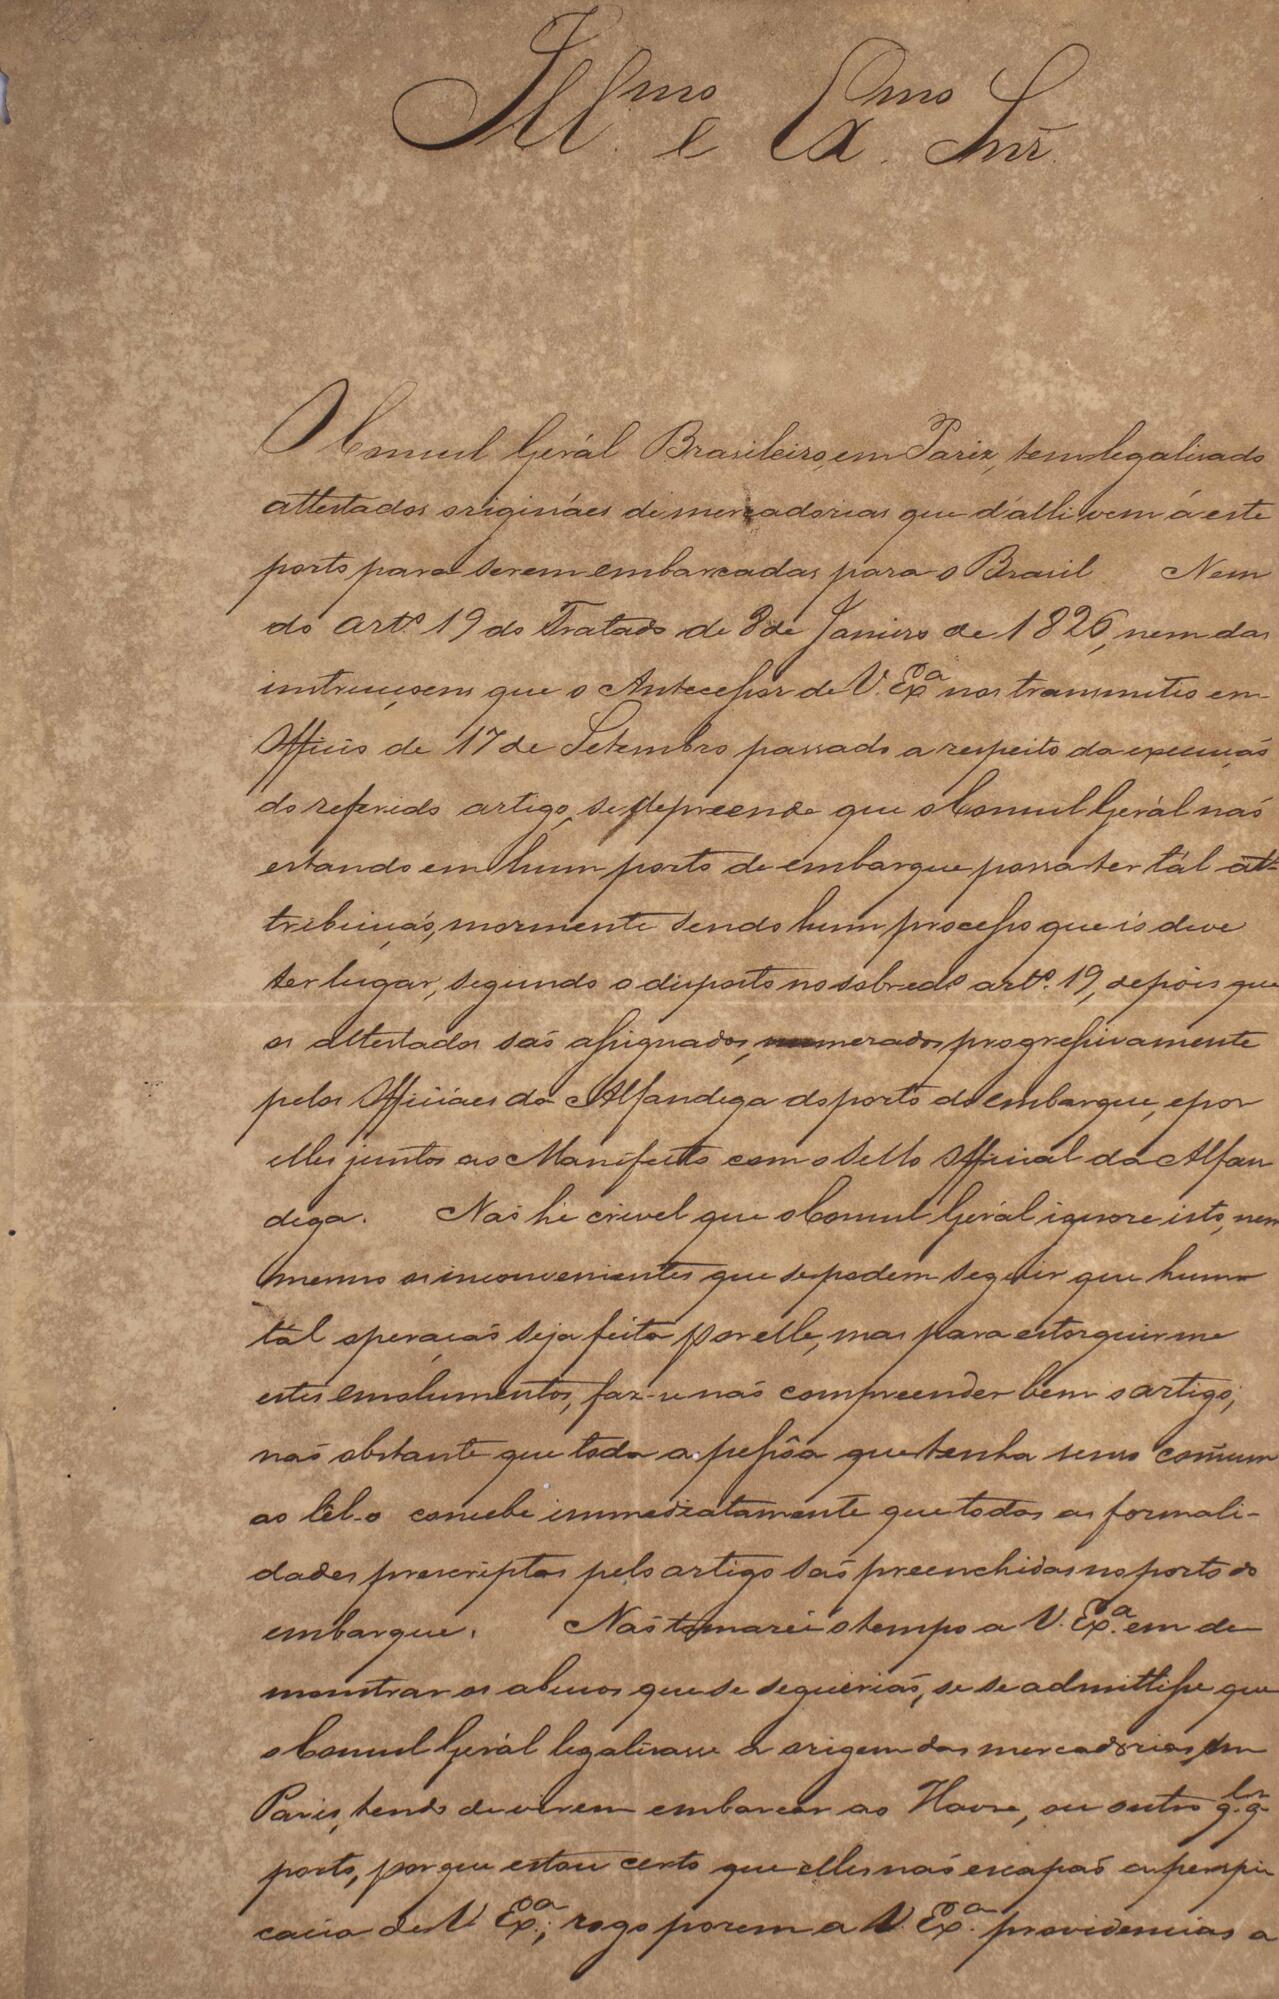 Ill.mo e Ex.mo Snr.
O Consul Gerál Brasileiro, em Pariz, tem legalisado
attestados origináes de mercadorias que d'alli vem á este
porto para serem embarcadas para o Brasil Nem
do art.o 19 do Tratado de 8 de Janeiro de 1826, nem das
instrucçoens que o Antecessor de V. Ex.a nos transmitio em
Officio de 17 de Setembro passado a respeito da execuçaõ
do referido artigo, se depreende que o Consul Gerál naõ
estando em hum porto de embarque possa ter tál at-
tribuiçaõ, mormente sendo hum processo que só deve
ter lugar, segundo o disposto no sobred.o art.o 19, depois que
os attestados saõ assignados, numerados progressivamente
pelos Officiáes da Alfandega do porto do embarque, e por
elles juntos ao Manifesto com o Sello Official da Alfan
dega. Naõ hé crivel que o Consul Gerál ignore isto, nem
menos os inconvenientes que se podem seguir que huma
tál operaçaõ seja feita por elle, mas para estorquir-me
estes emolumentos, faz-se naõ comprender bem o artigo,
naõ obstante que toda a pessôa que tenha senso comum
ao lêl-o concebe immediatamente que todas as formali-
dades prescriptas pelo artigo saõ preenchidas no porto do
embarque. Naõ tomarei o tempo a V. Ex.a em de
monstrar os abusos que se seguiriaõ, se se admittisse que
o Consul Gerál legalisasse a origem das mercadorias, em
Paris, tendo de virem embarcar ao Havre, ou outro q.q.lr
porto, porque estou certo que elles naõ escapaõ a perspi
cacia de V. Ex.a; rogo porem a V. Ex.a providencias a